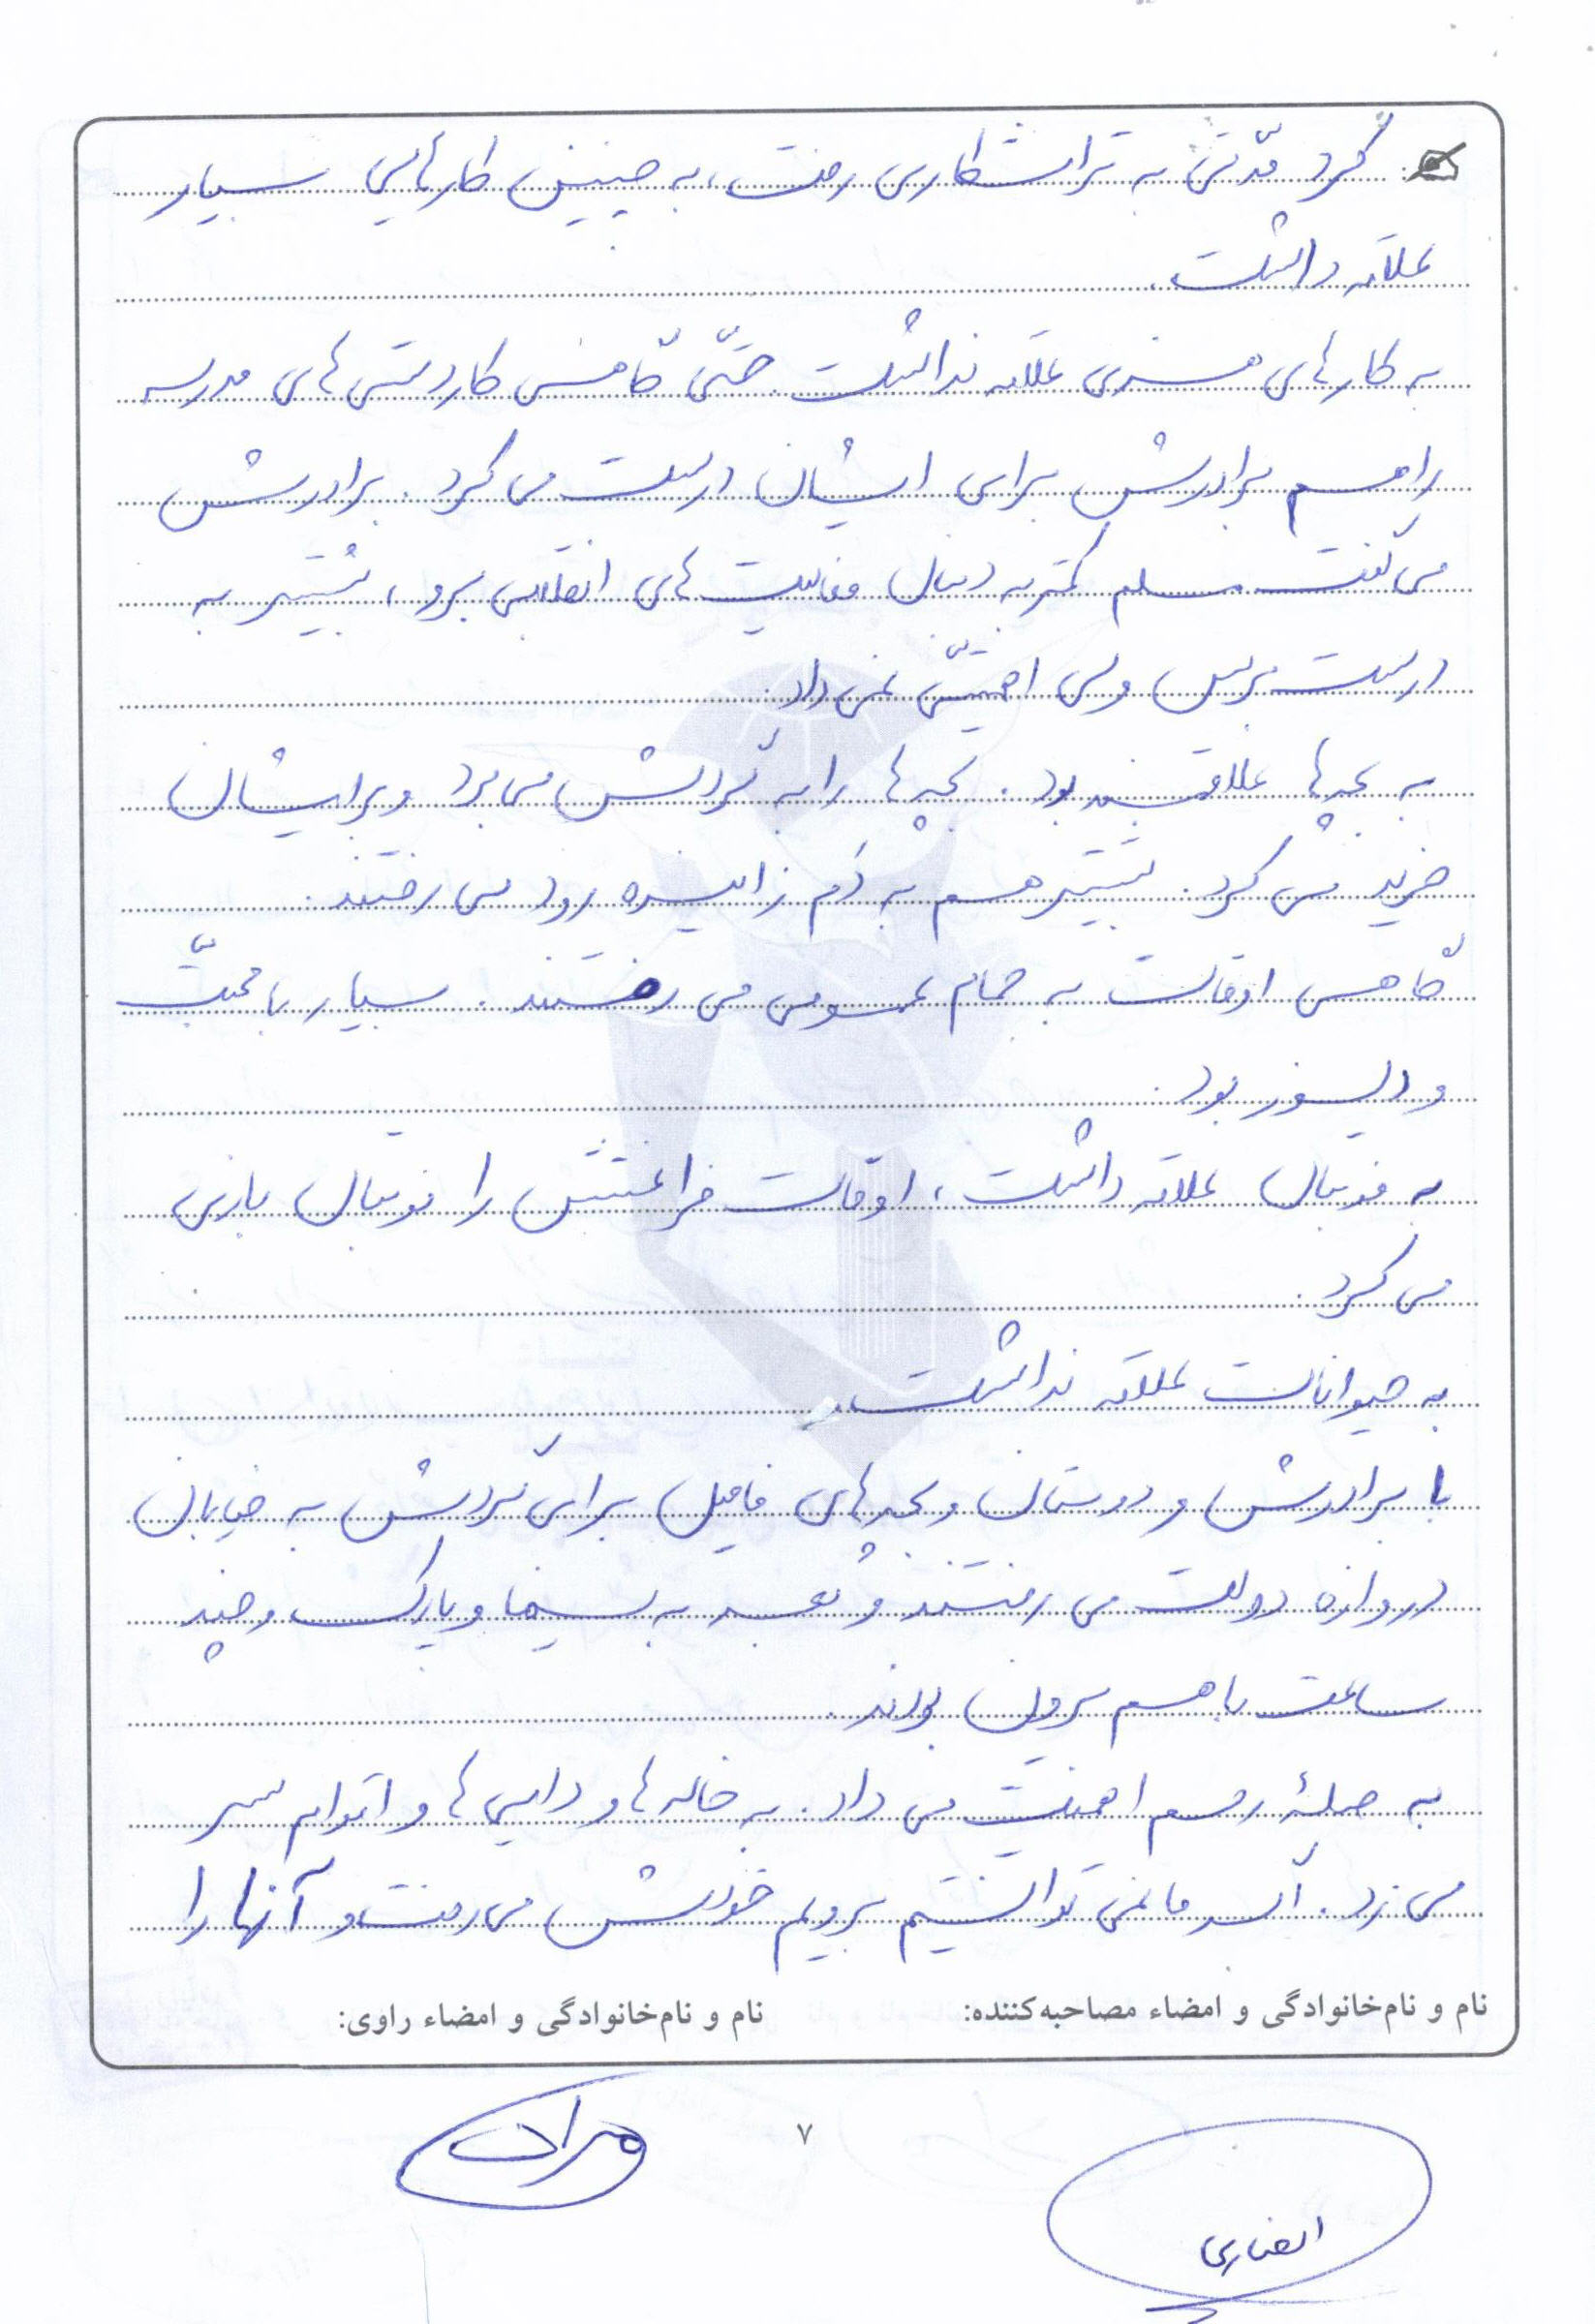 کرد مدّتی به تراشکاری رفت، به چنین کارهایی بسیار
علاقه داشت.
به کارهای هنری علاقه نداشت. حتّی گاهی کاردستی‌های مدرسه
را هم برادرش برای ایشان درست می‌کرد. برادرش
می‌گفت مسلم کمتر به دنبال فعالیت‌های انقلابی برو، بیشتر به
درست برس ولی اهمیّتی نمی‌داد.
به بچه‌ها علاقمند بود. بچه‌ها را به گردش می‌برد و برایشان
خرید می‌کرد. بیشتر هم به دَم زاینده رود می‌رفتند.
گاهی اوقات به حمام عمومی می‌رفتند. بسیار با محبّت
و دلسوز بود.
به فوتبال علاقه داشت، اوقات فراغتش را فوتبال بازی
می‌کرد.
به حیوانات علاقه نداشت.
با برادرش و دوستان و بچه‌های فامیل برای گردش به خیابان
دروازه دولت می‌رفتند و بعد به سینما و پارک و چند
ساعت با هم بیرون بودند.
به صلهٔ رحم اهمیّت می‌داد. به خاله‌ها و دایی‌ها و اقوام سر
می‌زد. اگر ما نمی‌توانستیم برویم خودش می‌رفت و آنها را
نام و نام‌خانوادگی و امضاء مصاحبه‌کننده: نام و نام‌خانوادگی و امضاء راوی:
۷
انصاری